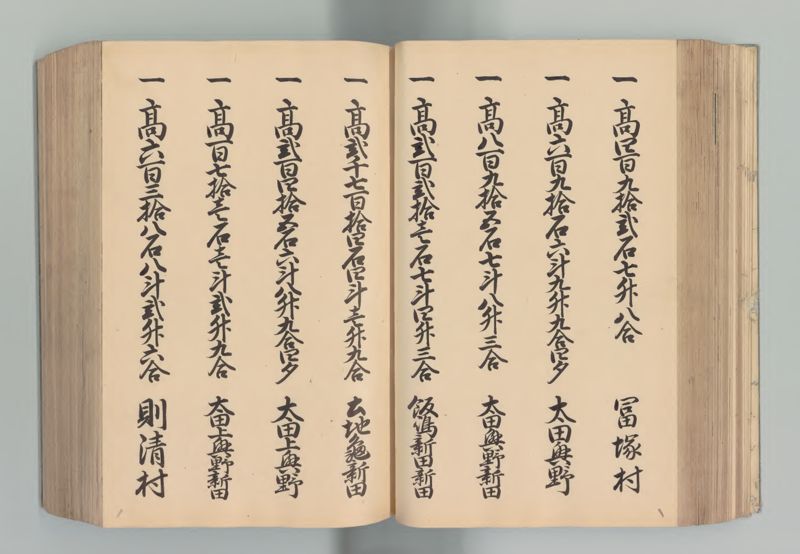 一 高四百九拾弐石七升八合 冨塚村
一 高六百九拾石六斗九升九合四夕 太田興野
一 高八百九拾五石七斗八升三合 太田興野新田
一 高弐百弐拾壱石七斗四升三合 飯嶋新田新田
一 高弐千七百拾四石四斗壱升九合 去地亀新田
一 高弐百四拾五石六斗八升九合四夕 太田上興野
一 高百七拾壱石壱斗弐升九合 太田上興野新田
一 高六百三拾八石八斗弐升六合 則清村